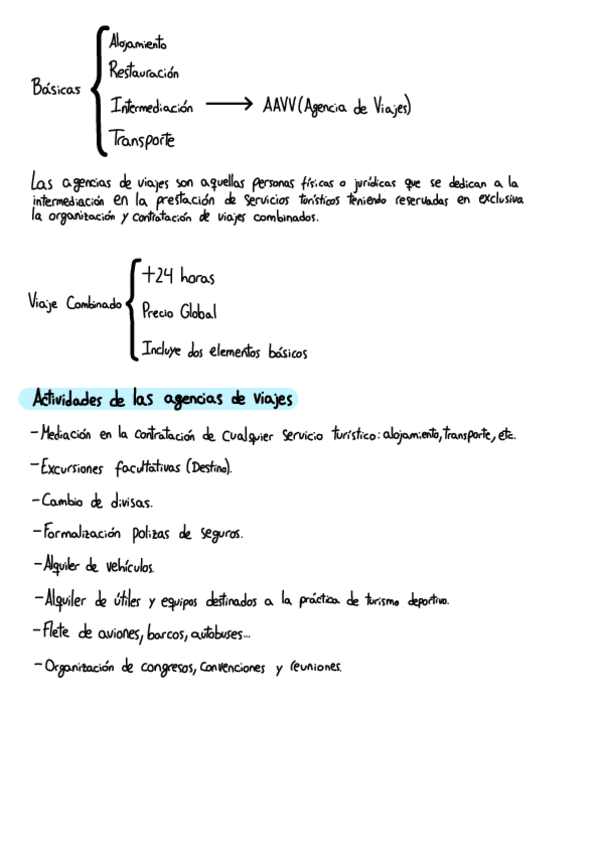 Básicas
Alojamiento
Restauración
Intermediación → AAVV (Agencia de Viajes)
Transporte
Las agencias de viajes son aquellas personas físicas o jurídicas que se dedican a la
intermediación en la prestación de servicios turísticos teniendo reservadas en exclusiva
la organización y contratación de viajes combinados.
Viaje Combinado
+24 horas
Precio Global
Incluye dos elementos básicos
Actividades de las agencias de viajes
-Mediación en la contratación de cualquier servicio turístico: alojamiento, transporte, etc.
-Excursiones facultativas (Destino).
-Cambio de divisas.
-Formalización polizas de seguros.
-Alquiler de vehículos.
-Alquiler de útiles y equipos destinados a la práctica de turismo deportivo.
-Flete de aviones, barcos, autobuses...
-Organización de congresos, convenciones y reuniones.